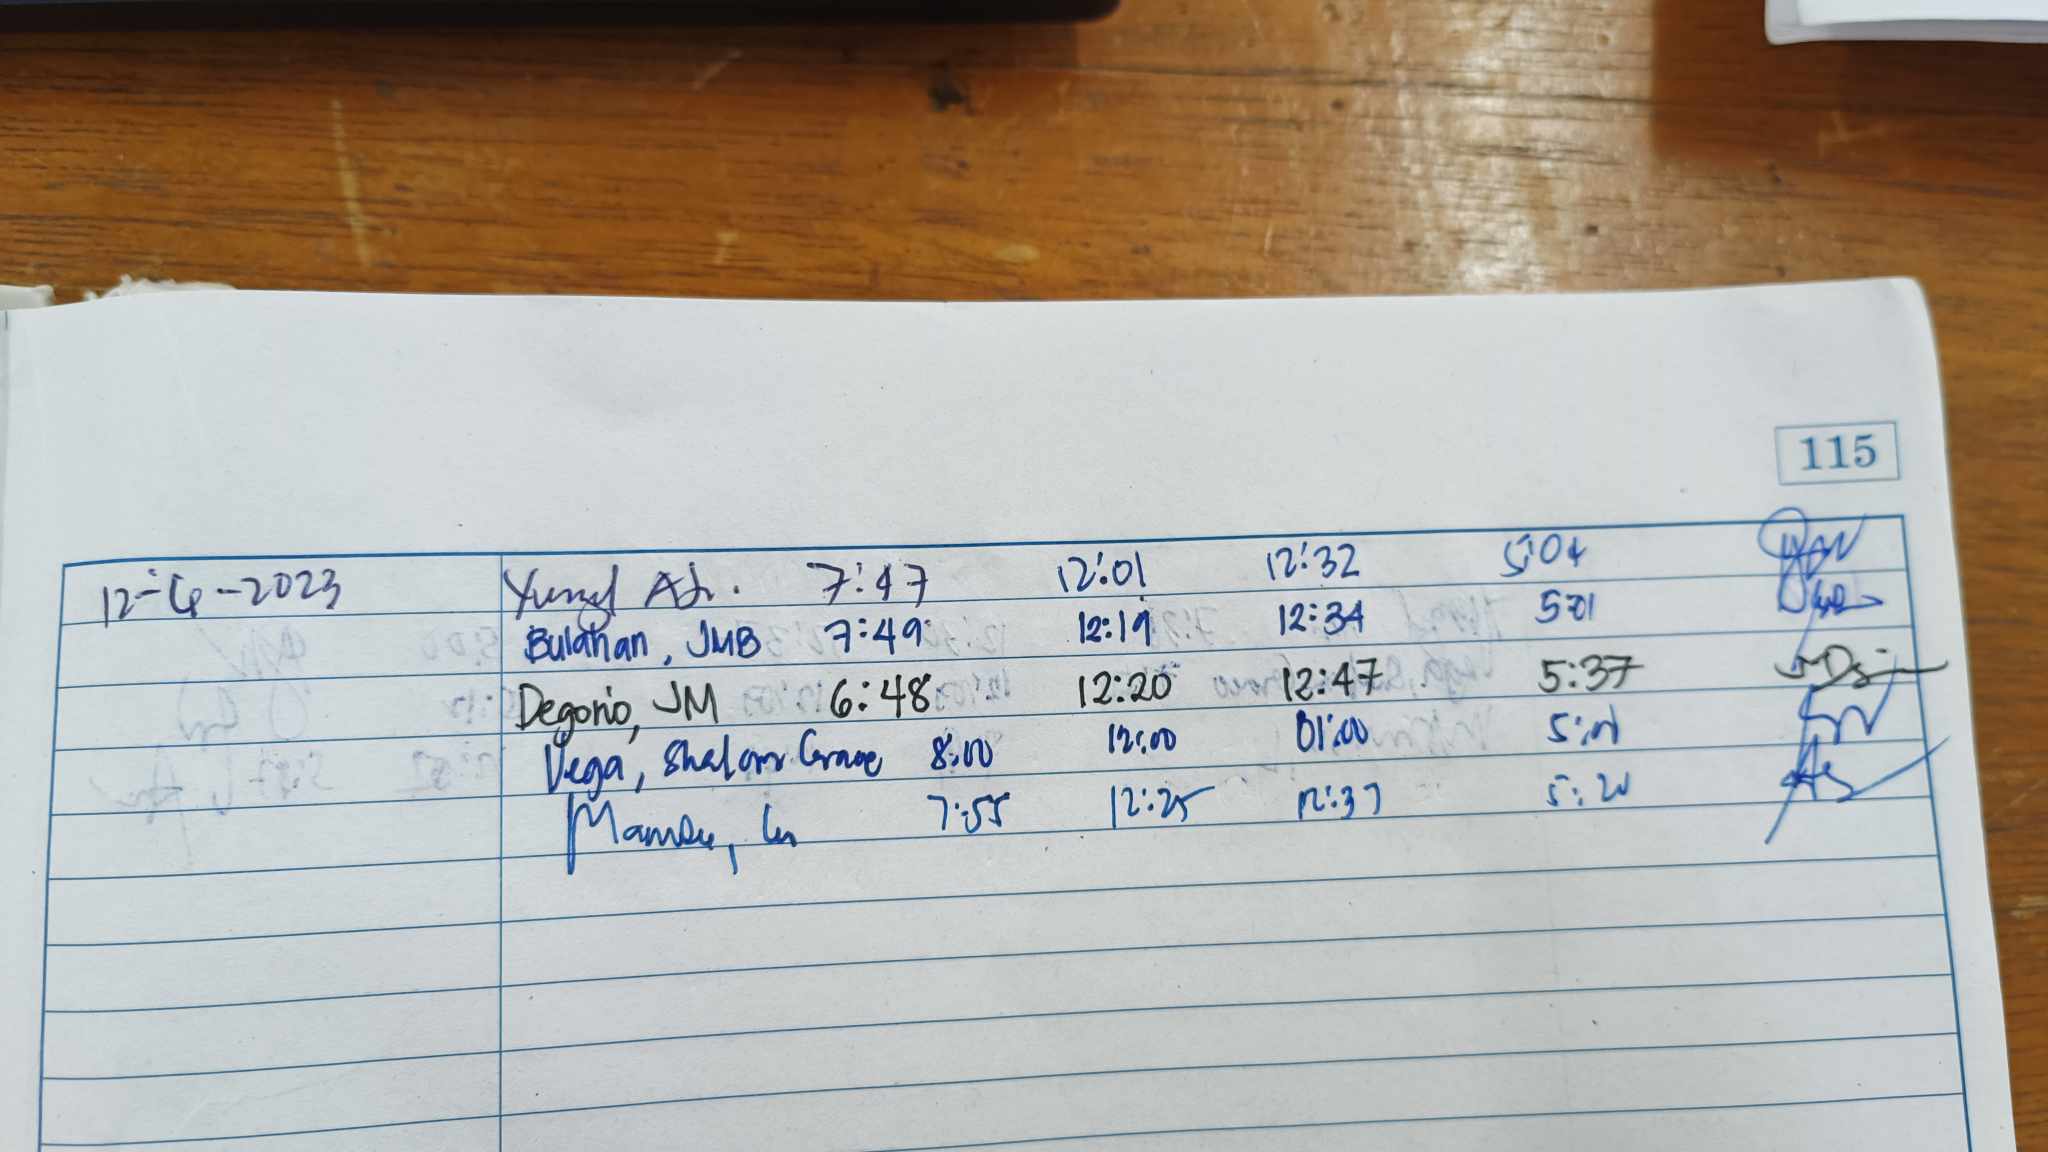 115
12-6-2023 7:47 12:01 12:32 5:04
Bulahan, JMB 7:49 12:19 12:34 5:01
Degorio, JM 6:48 12:20 12:47 5:37
Vega, Shalom Grace 8:00 12:00 01:00 5:01
7:55 12:25 12:37 5:20